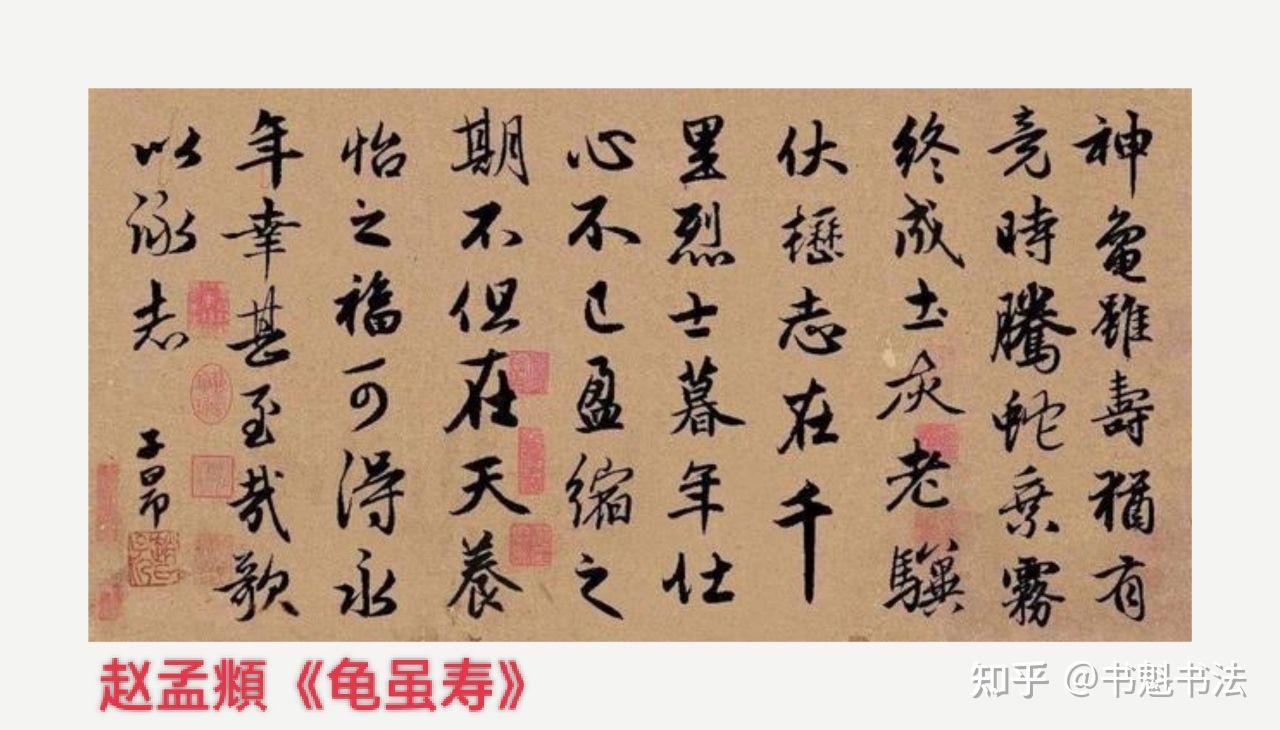 神龜雖壽猶有
竟時騰蛇乘霧
終成土灰老驥
伏櫪志在千
里烈士暮年壮
心不已盈縮之
期不但在天養
怡之福可得永
年幸甚至哉歌
以詠志
子昂
赵孟頫《龟虽寿》
知乎 @书魁书法